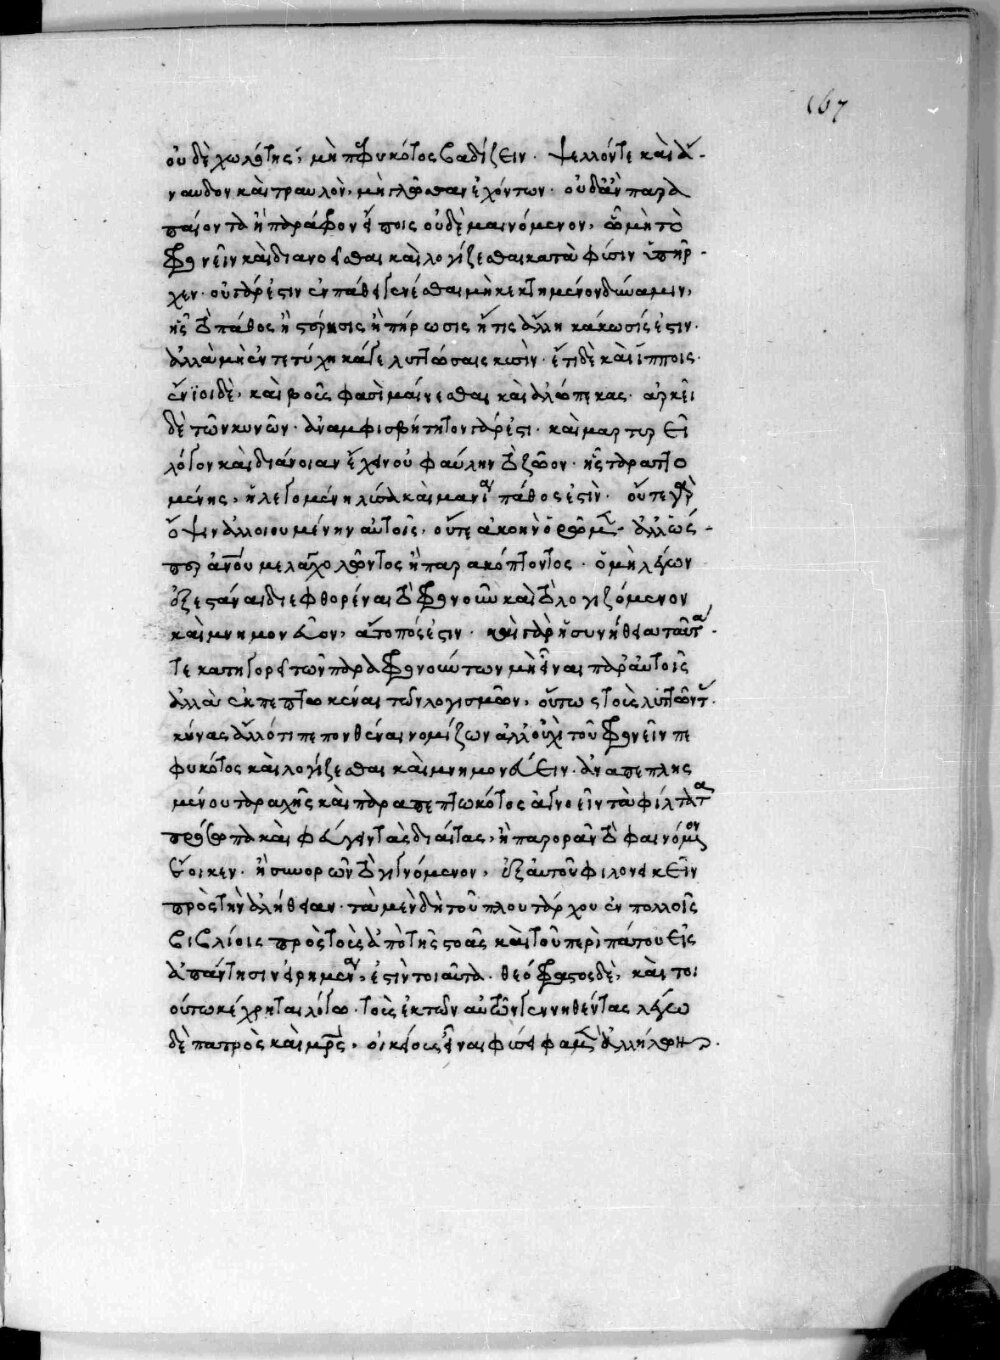 οὐδὲ χωλότης, μὴ πεφυκότος βαδίζειν. ψελλόν τε καὶ ἄ-
ναυδον καὶ τραυλὸν, μὴ γλῶτταν ἐχόντων. οὐδ' ἂν παρα
παίοντα ἢ παράφρον' εἴποις οὐδὲ μαινόμενον, ᾧ μὴ τὸ
φρονεῖν καὶ διανοεῖσθαι καὶ λογίζεσθαι κατὰ φύσιν ὑπῆρ-
χεν. οὐ γάρ ἐστιν ἐν πάθει γενέσθαι μὴ κεκτημένον δύναμιν,
ἧς τὸ πάθος ἢ στέρησις ἢ πήρωσις ἤ τις ἄλλη κάκωσίς ἐστιν.
ἀλλὰ μὴν ἐντετύχηκά γε λυττώσαις κυσὶν. ἔτι δὲ καὶ ἵπποις.
ἔνϊοι δὲ, καὶ βοῦς φασὶ μαίνεσθαι καὶ ἀλώπεκας. ἀρκεῖ
δὲ τῶν κυνῶν. ἀναμφισβήτητον γάρ ἐστι. καὶ μαρτυρεῖ
λόγον καὶ διάνοιαν ἔχειν οὐ φαύλην τὸ ζῶον. ἧς ταραττο
μένης, ἡ λεγομένη λύσσα καὶ μανία πάθος ἐστὶν. οὔτε γὰρ
ὄψιν ἀλλοιουμένην αὐτοῖς, οὔτε ἀκοὴν ὁρῶμεν. ἀλλ' ὥσ-
περ ἀνου μελαγχολῶντος ἢ παρακόπτοντος. ὁ μὴ λέγων
ἐξεστάναι διεφθορέναι τὸ φρονοῦν καὶ τὸ λογιζόμενον
καὶ μνημονεῦον, ἄτοπός ἐστιν. καὶ γὰρ ἡ συνήθεια ταῦτα-
τε κατηγορεῖ τῶν παραφρονούντων μὴ εἶναι παρ' αὐτοῖς
ἀλλὰ ἐκπεπτωκέναι τῶν λογισμῶν, οὕτως τοὺς λυττῶντας
κύνας ἄλλό τι πεπονθέναι νομίζων ἀλλ' οὐχὶ τοῦ φρονεῖν πε
φυκότος καὶ λογίζεσθαι καὶ μνημονεύειν. ἀναπεπλησ
μένου ταραχῆς καὶ παραπεπτωκότος ἀγνοεῖν τὰ φίλτατα
πρόσωπα καὶ φεύγειν τὰς διαίτας, ἢ παρορᾶν τὸ φαινόμενον
ἔοικεν. ἢ συνορῶν τὸ γιγνόμενον, ἐξ αὐτοῦ φιλονεικεῖν
πρὸς τὴν ἀλήθειαν. τὰ μὲν δὴ τοῦ πλουτάρχου ἐν πολλοῖς
βιβλίοις πρὸς τοὺς ἀπὸ τῆς στοᾶς καὶ τοῦ περιπάτου εἰς
ἀπάντησιν εἰρημένα, ἐστὶν τοιαῦτα. θεόφραστος δὲ, καὶ τοι
ούτω κέχρηται λόγω. τοὺς ἐκ τῶν αὐτῶν γεννηθέντας λέγω
δὲ πατρὸς καὶ μρς, οἰκείους εἶναι φύσει φαμὲν ἀλλήλων.